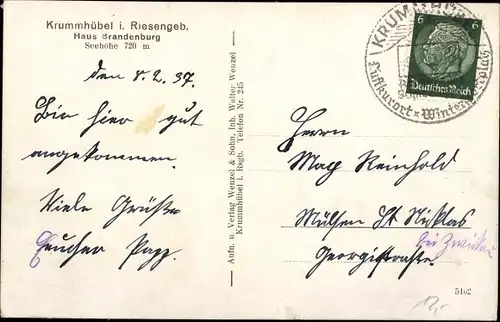 Krummhübel i. Riesengeb.
Haus Brandenburg
Seehöhe 720 m
den 8.2.37.
Bin hier gut
angekommen.
Viele Grüße
Papp.
Aufn. u. Verlag Wenzel & Sohn, Inh. Walter Wenzel
Krummhübel i. Rsgb. Telefon Nr. 245
KRUMMHÜB
Luftkurort × Wintersportplatz
6 6
Deutsches Reich
Herrn
Max Reinhold
Mülsen St Niklas
bei Zwickau
Georgistraße.
5102
12,-